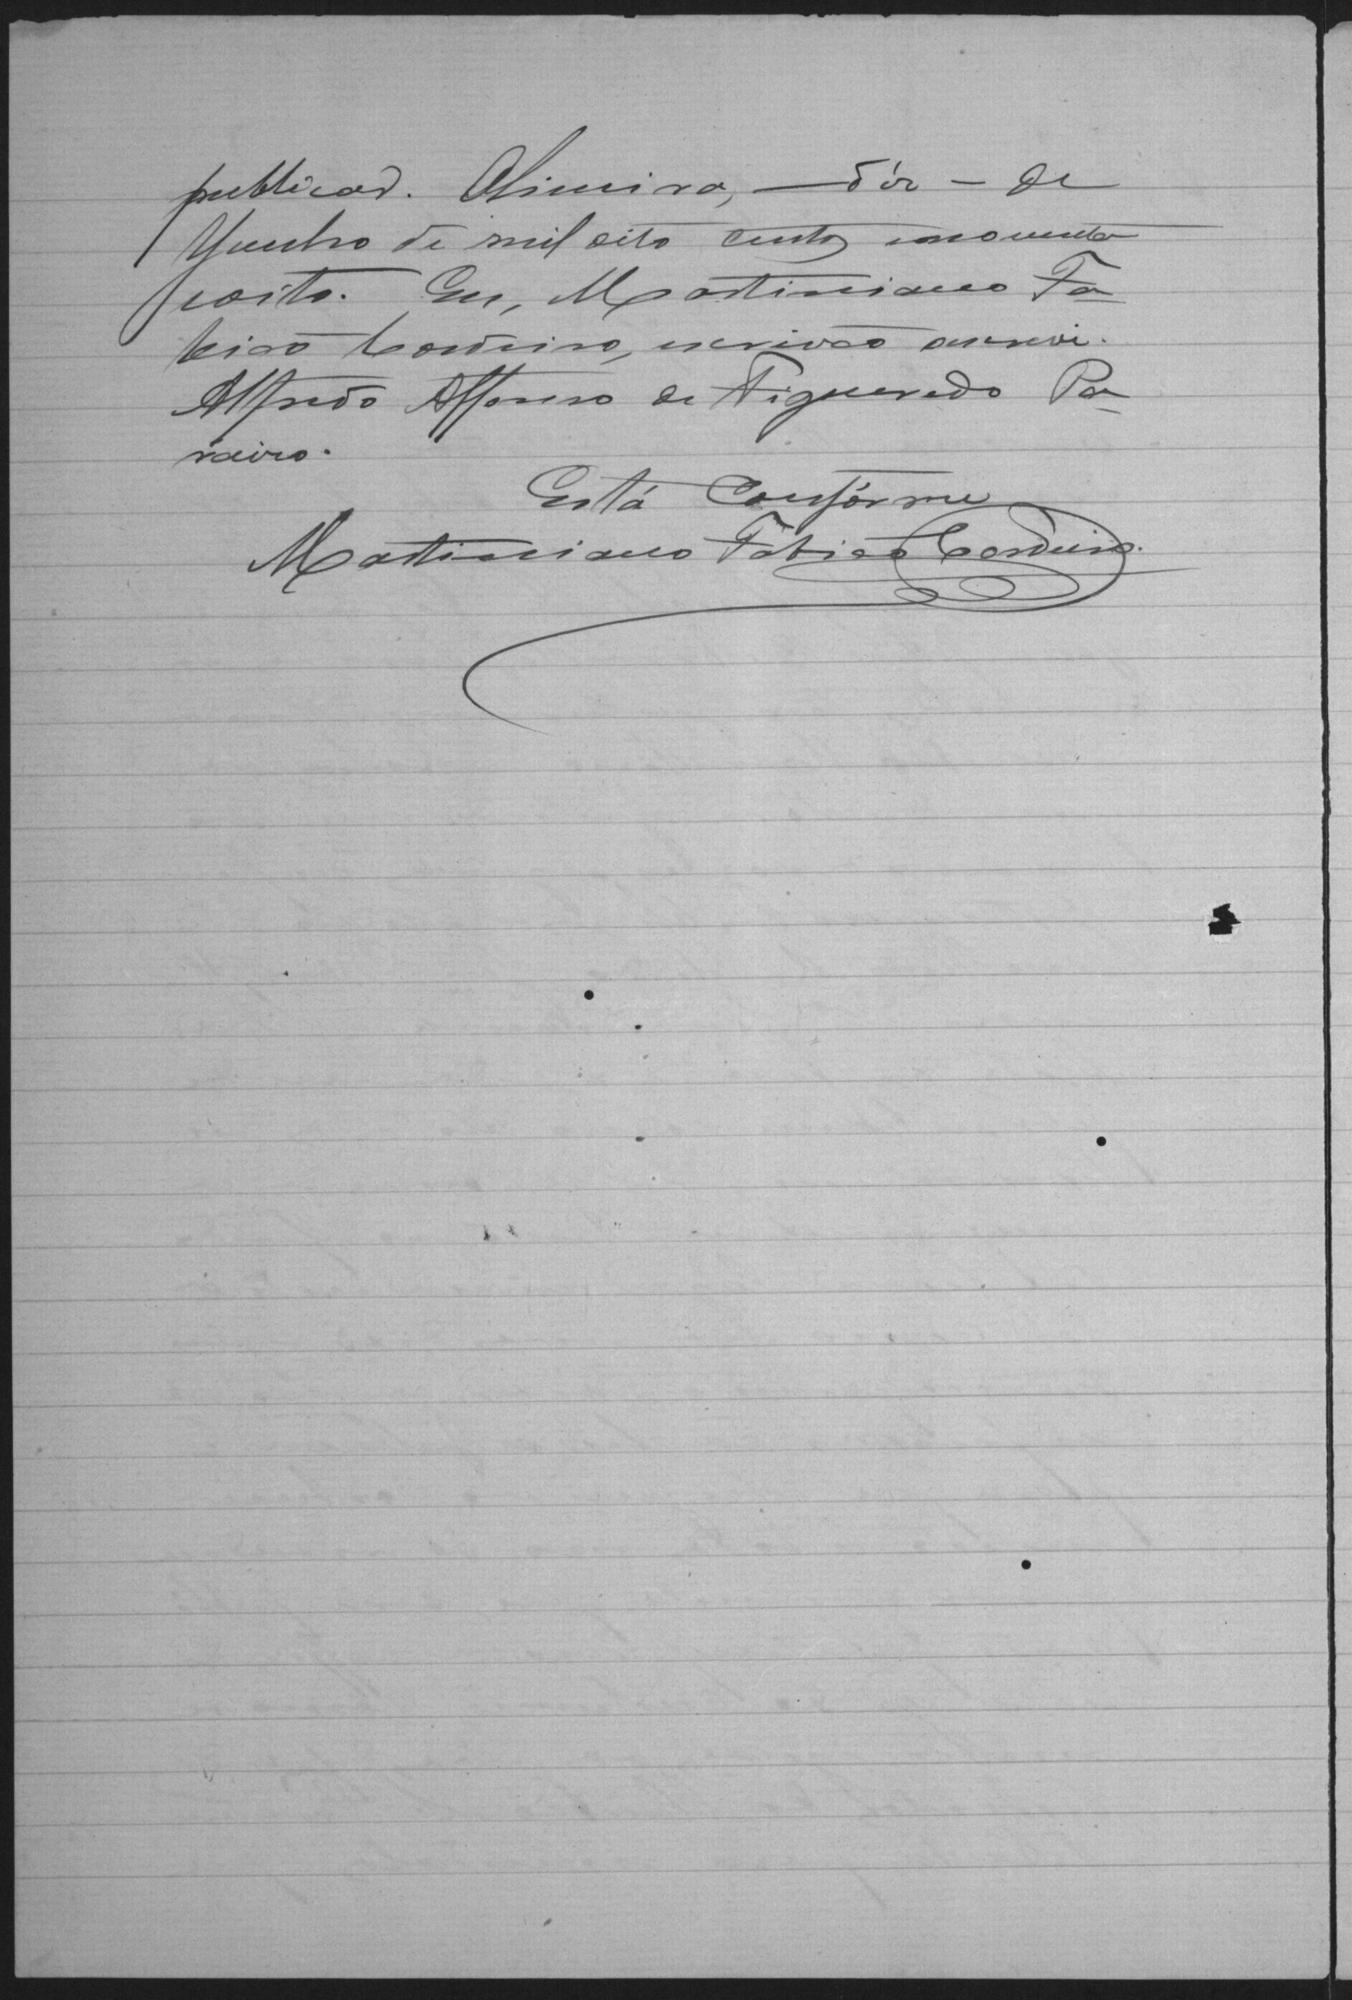 publicad. Limeira, — dôz — de
Junho de mil oito centos e noventa
e oito. Eu, Martiniano Fa
bião Cordeiro, escrivão escrevi.
Alfredo Affonso de Figueredo Pa-
raiso.
Está Confórme
Martiniano Fabião Cordeiro.